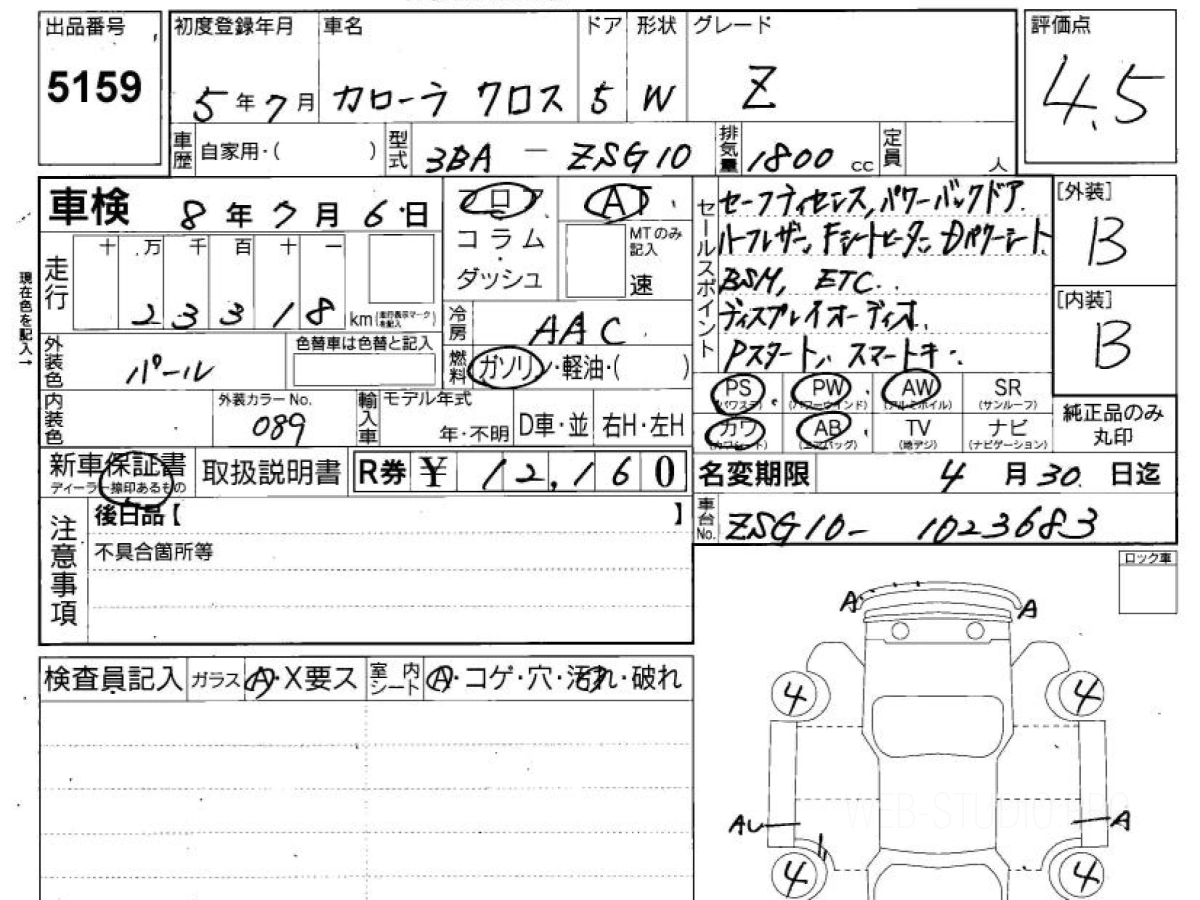 出品番号
5159
初度登録年月 車名 ドア 形状 グレード
5年7月 カローラ クロス 5 W Z
評価点
4.5
車歴 自家用・( ) 型式 3BA-ZSG10 排気量 1800cc 定員 人
車検 8年7月6日
フロア
コラム
・
ダッシュ
AT
MTのみ記入
速
走行 十 万 千 百 十 一
23318 km (走行表示マークを記入)
現在色を記入→
冷房 AAC
外装色 パール
色替車は色替と記入
燃料 ガソリン・軽油・( )
内装色
外装カラーNo.
089
輸入車 モデル年式
年・不明 D車・並 右H・左H
セールスポイント
セーフティセンス,パワーバックドア.
ハーフレザー,Fシートヒーター,Dパワーシート
BSM, ETC.
ディスプレイオーディオ.
Pスタート,スマートキー.
[外装]
B
[内装]
B
PS (パワステ) PW (パワーウインド) AW (アルミホイル) SR (サンルーフ)
カワ (カワシート) AB (エアバッグ) TV (地デジ) ナビ (ナビゲーション)
純正品のみ
丸印
新車保証書
ディーラー捺印あるもの
取扱説明書
R券 ¥12,160
名変期限 4月30日迄
車台No. ZSG10-1023683
注意事項
後日品【 】
不具合箇所等
ロック車
A A
4 4
検査員記入 ガラス A・X要ス 室内シート A・コゲ・穴・汚れ・破れ
WEB-STUDIO.PRO
AU A
4 4